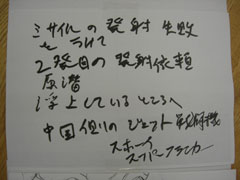 ミサイルの発射失敗
をうけて
2発目の発射依頼
原潜
浮上しているところへ
中国側のジェット戦闘機
スホーイ
スーパーフランカー